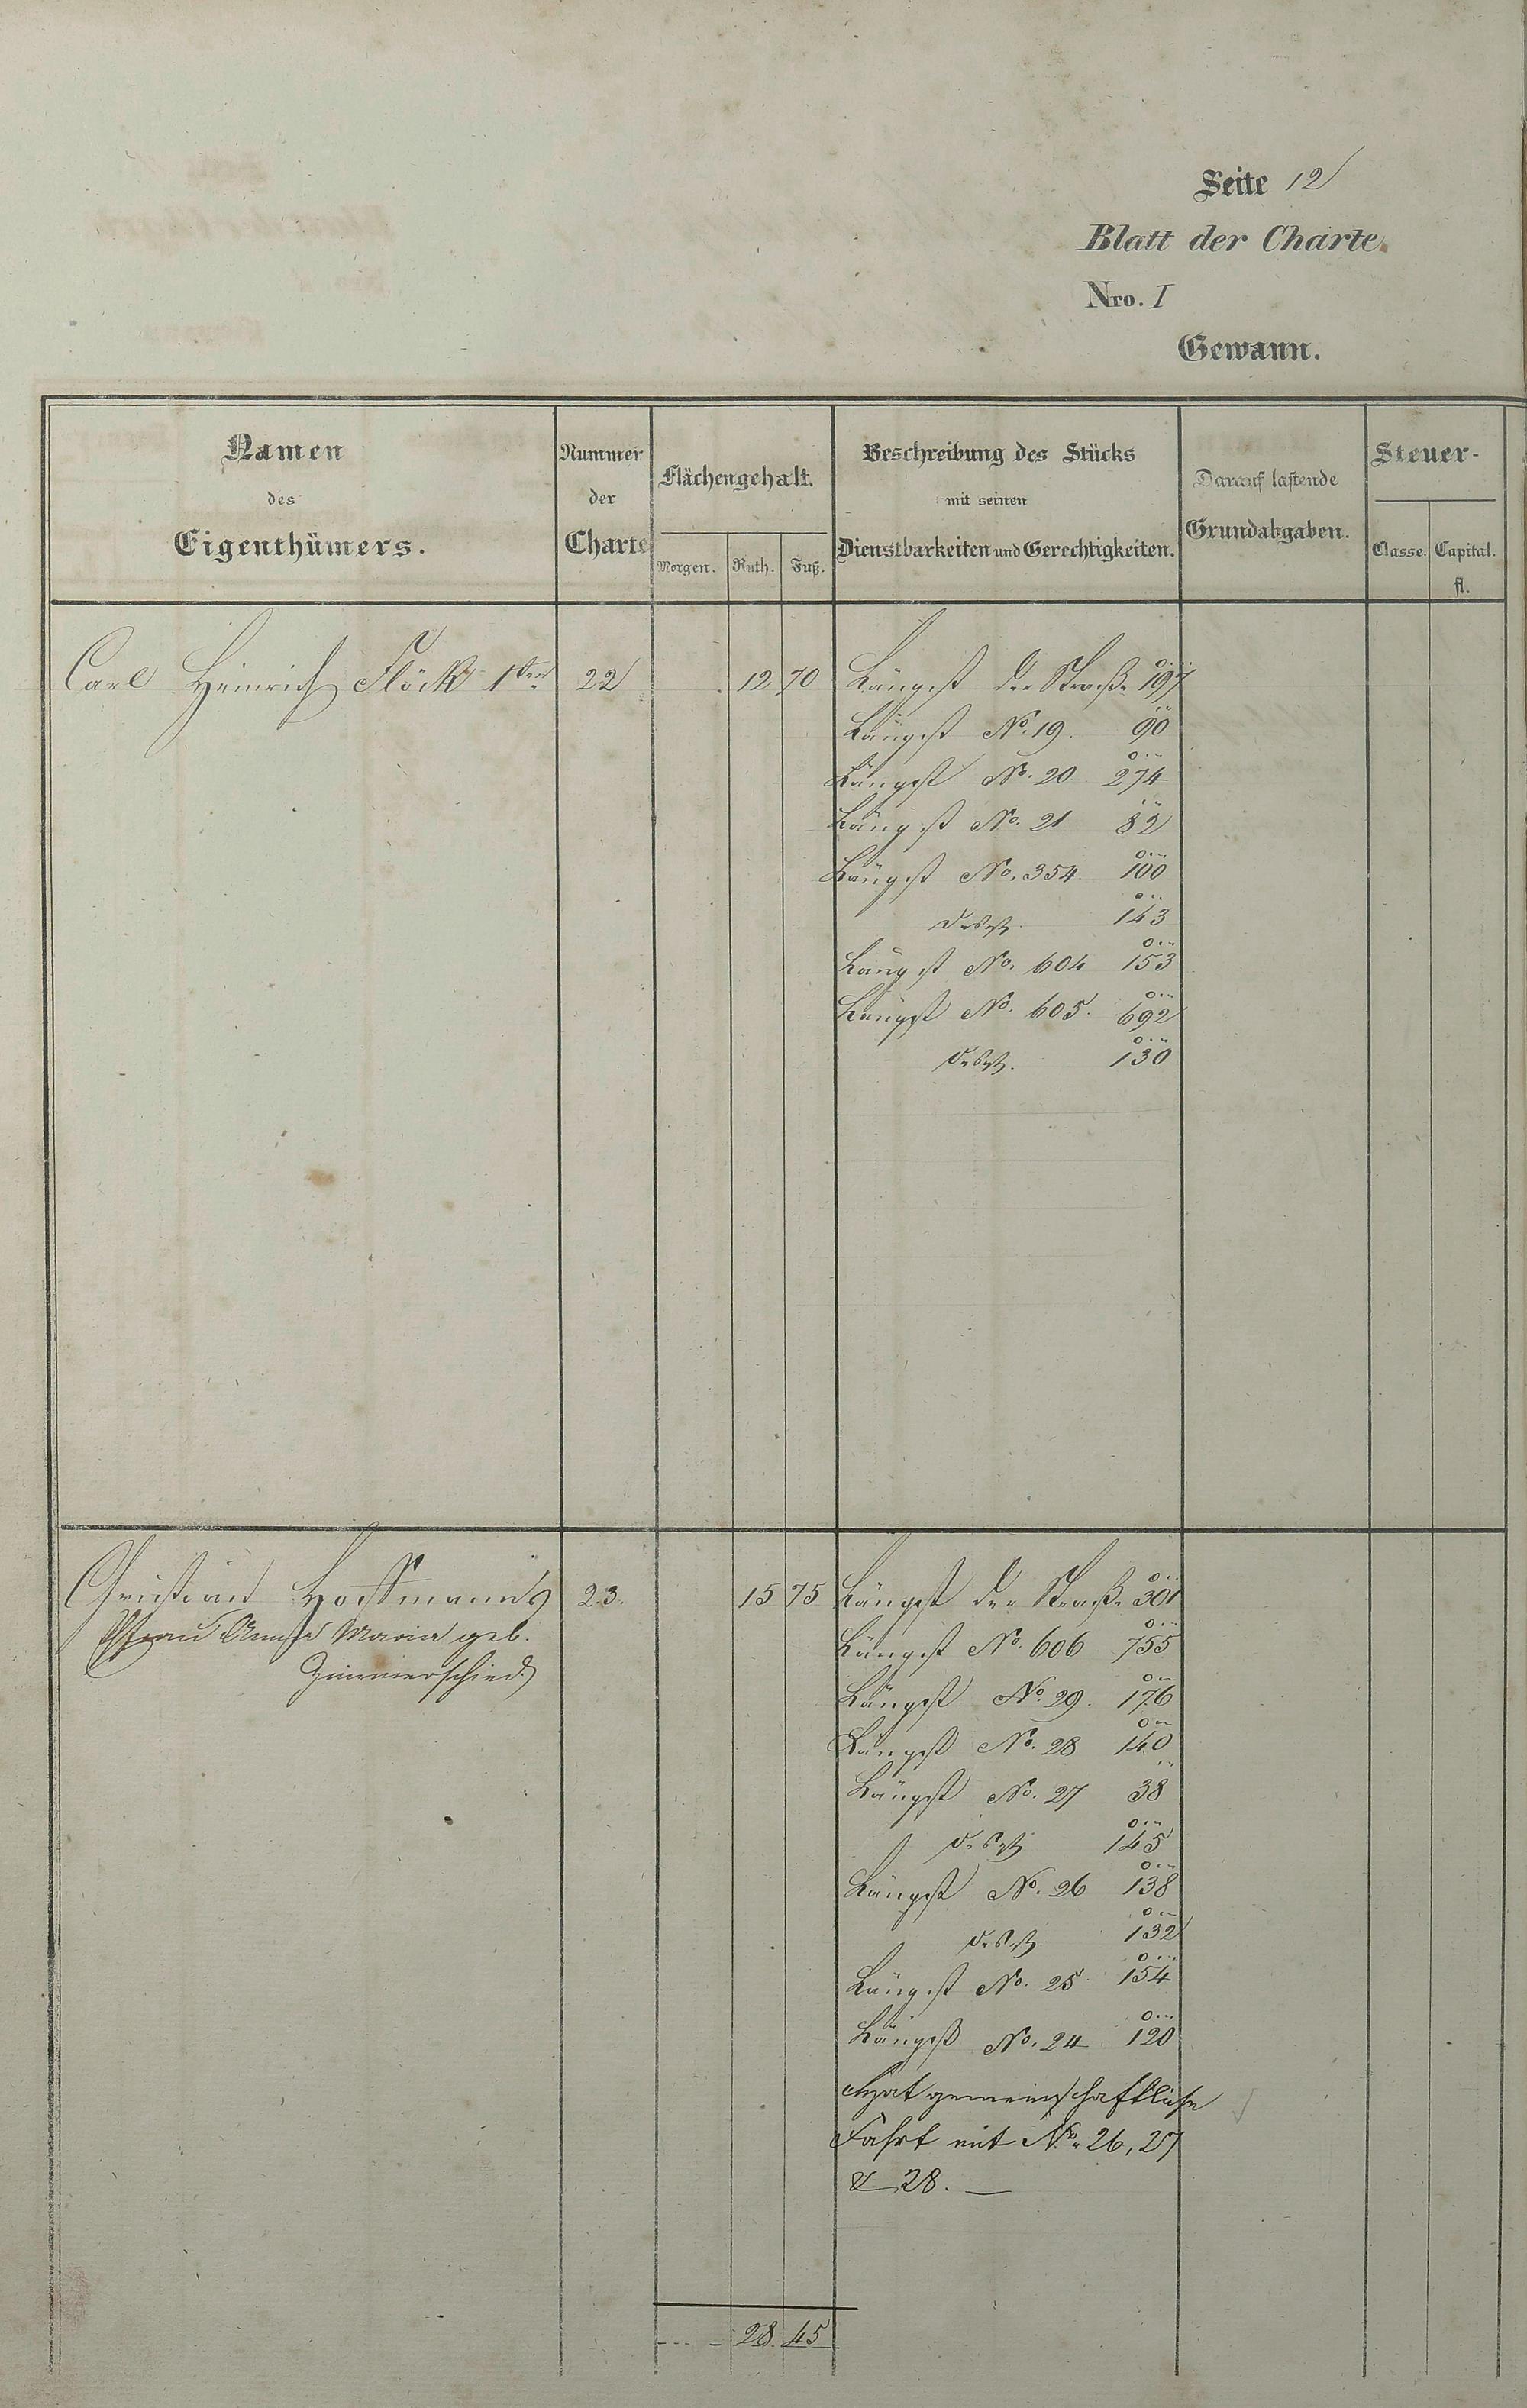 Seite 12
Blatt der Charte.
Nro. I
Gewann.
Namen des Eigenthümers.
Nummer der Charte
Flächengehalt.
Morgen. Ruth. Fuß.
Beschreibung des Stücks mit seinen Dienstbarkeiten und Gerechtigkeiten.
Darauf lastende Grundabgaben.
Steuer-
Classe. Capital. fl.
Carl Heinrich Flöck 1ter 22 12 70 Längst der Straße 197
Längst No. 19. 90
Längst No. 20 274
Längst No. 21 82
Längst No. 354 100
143
Längst No. 604 153
Längst No. 605. 692
130
Christian Hoffmann's 23. 15 75 Längst der Straße 301
Ehefrau Maria geb. Längst No. 606 755
Zimmerschied Längst No. 29. 176
Längst No. 28 140
Längst No. 27 38
145
Längst No. 26 138
132
Längst No. 25 154
Längst No. 24 120
Hat gemeinschaftliche
Fahrt mit No. 26, 27
& 28. —
28 45